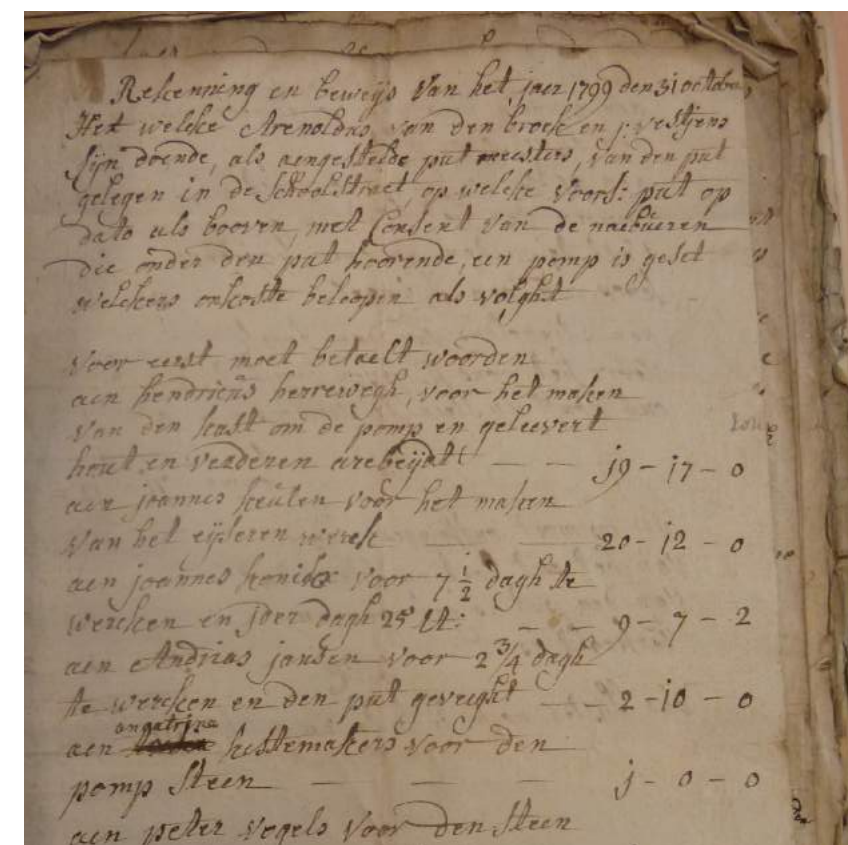 Rekenning en beweijs van het jaer 1799 den 31 octobr
Het welcke Arenoldus van den broek en j: vestjens
sijn doende, als aengestelde put meesters, van den put
gelegen in de schoolstraet, op welcke voors: put op
dato als booven, met Consent van de naebueren
die onder den put hoorende, een pomp is geset
welckers onkoste beloopen als volght
voor eerst moet betaelt woorden
aen hendricus herrewegh, voor het maken
van den kast om de pomp en geleevert
hout en verderen arebeijdt — — j9 - j7 - 0
aen joannes keulen voor het maken
van het eijseren werck — — 20 - j2 - 0
aen joannes konickx voor 7 1/2 dagh te
wercken en jder dagh 25 st: — — 9 - 7 - 2
aen Andrias jansen voor 2 3/4 dagh
te wercken en den put geveeght — — 2 - j0 - 0
angatrina
aen kistemakers voor den
pomp steen — — — j - 0 - 0
aen peter vogels voor den steen